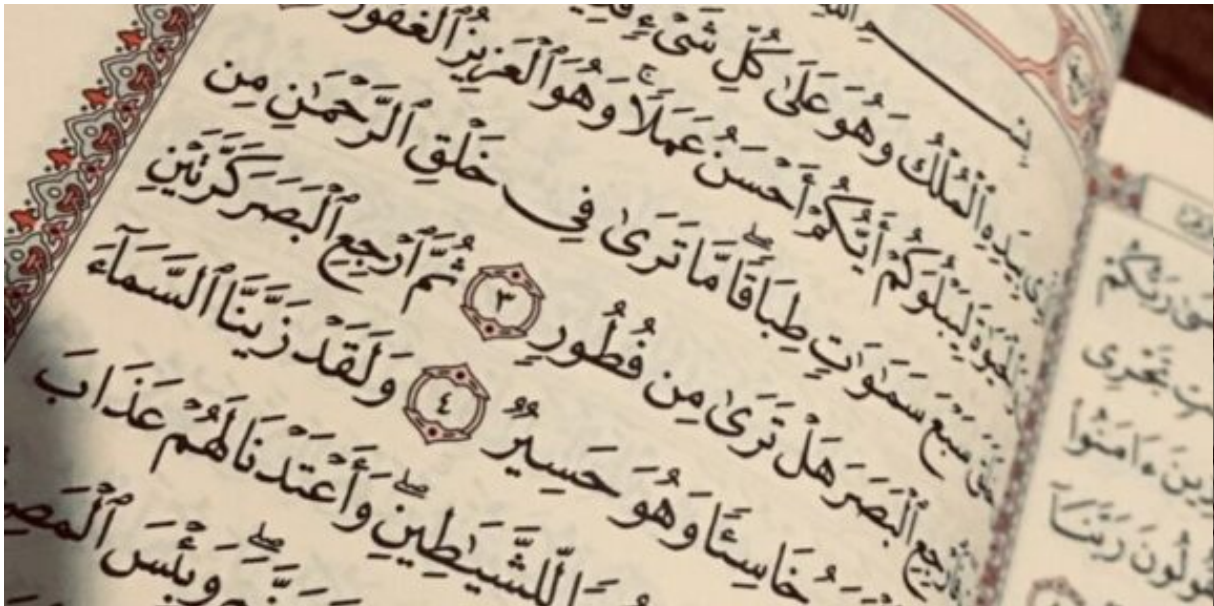 بِيَدِهِ ٱلْمُلْكُ وَهُوَ عَلَىٰ كُلِّ شَىْءٍ
لِيَبْلُوَكُمْ أَيُّكُمْ أَحْسَنُ عَمَلًا ۚ وَهُوَ ٱلْعَزِيزُ ٱلْغَفُورُ
سَبْعَ سَمَٰوَٰتٍ طِبَاقًا ۖ مَّا تَرَىٰ فِى خَلْقِ ٱلرَّحْمَٰنِ مِن
ٱلْبَصَرَ هَلْ تَرَىٰ مِن فُطُورٍ ٣ ثُمَّ ٱرْجِعِ ٱلْبَصَرَ كَرَّتَيْنِ
خَاسِئًا وَهُوَ حَسِيرٌ ٤ وَلَقَدْ زَيَّنَّا ٱلسَّمَآءَ
لِّلشَّيَٰطِينِ ۖ وَأَعْتَدْنَا لَهُمْ عَذَابَ
وَبِئْسَ
رَبُّكُمْ
تَجْرِى
ءَامَنُوا۟
رَبَّنَآ